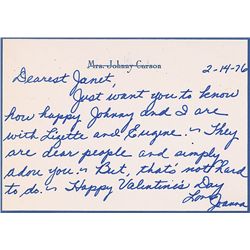 Mrs. Johnny Carson
2-14-76
Dearest Janet,
Just want you to know
how happy Johnny and I are
with Lizette and Eugine. ~ They
are dear people and simply
adore you. ~ But, that's not hard
to do. ~ Happy Valentine's Day
Love,
Joanna